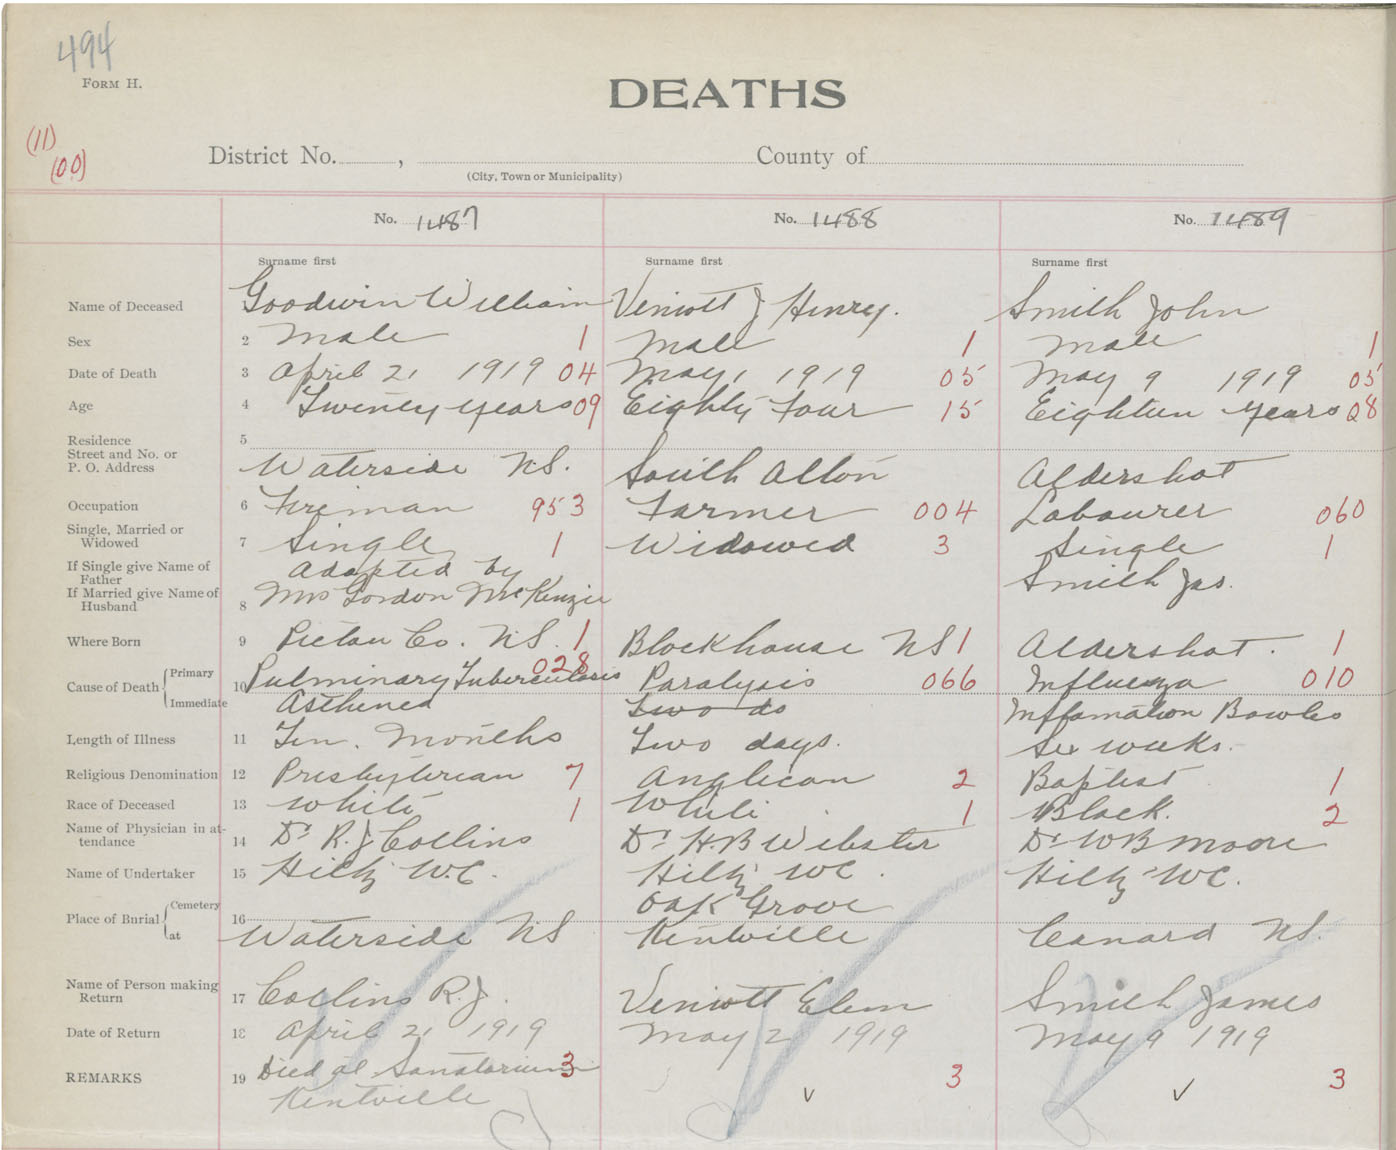 494
FORM H.
DEATHS
(11)
(00)
District No. , County of
(City, Town or Municipality)
No. 1487 No. 1488 No. 1489
Surname first Surname first Surname first
Name of Deceased Goodwin William Veniott J Henry. Smith John
Sex 2 Male 1 Male 1 Male 1
Date of Death 3 April 21 1919 04 May 1 1919 05 May 9 1919 05
Age 4 Twenty years 09 Eighty Four 15 Eighteen years 28
Residence 5
Street and No. or
P. O. Address Waterside N.S. South Alton Aldershot
Occupation 6 Fireman 953 Farmer 004 Labourer 060
Single, Married or
Widowed 7 Single 1 Widowed 3 Single 1
If Single give Name of
Father Adopted by Smith Jas.
If Married give Name of
Husband 8 Mrs Gordon McKenzie
Where Born 9 Pictou Co. N.S. 1 Blockhouse NS 1 Aldershot. 1
Cause of Death Primary 10 Pulminary Tuberculosis 028 Paralysis 066 Influenza 010
Immediate Asthenea Two do Inflamation Bowles
Length of Illness 11 Ten. Months Two days. Six weeks.
Religious Denomination 12 Presbyterian 7 Anglican 2 Baptist 1
Race of Deceased 13 White 1 White 1 Black. 2
Name of Physician in at-
tendance 14 Dr R. J Collins Dr H.B Webster Dr W B Moore
Name of Undertaker 15 Hiltz W.C. Hiltz WC. Hiltz WC.
Place of Burial Cemetery 16 Oak Grove
at Waterside NS Kentville Canard NS.
Name of Person making
Return 17 Collins R.J. Veniott Smith James
Date of Return 18 April 21 1919 May 2 1919 May 9 1919
REMARKS 19 Died at Sanatorium 3 3 3
Kentville